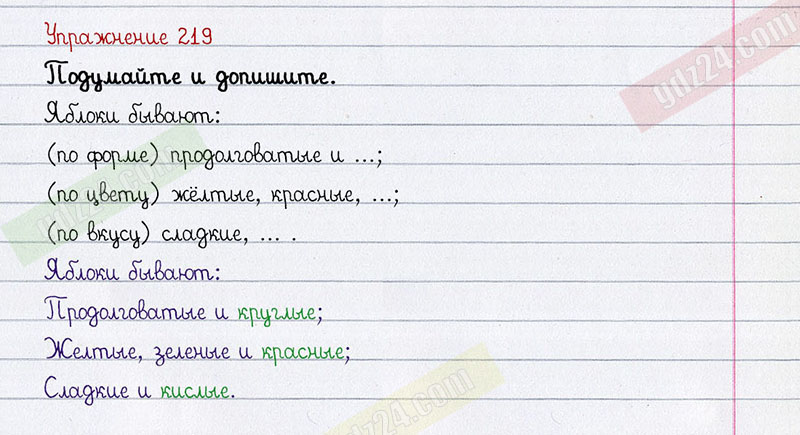 Упражнение 219
Подумайте и допишите.
Яблоки бывают:
(по форме) продолговатые и ...;
(по цвету) жёлтые, красные, ...;
(по вкусу) сладкие, ... .
Яблоки бывают:
Продолговатые и круглые;
Желтые, зеленые и красные;
Сладкие и кислые.
gdz24.com
gdz24.com
gdz24.com